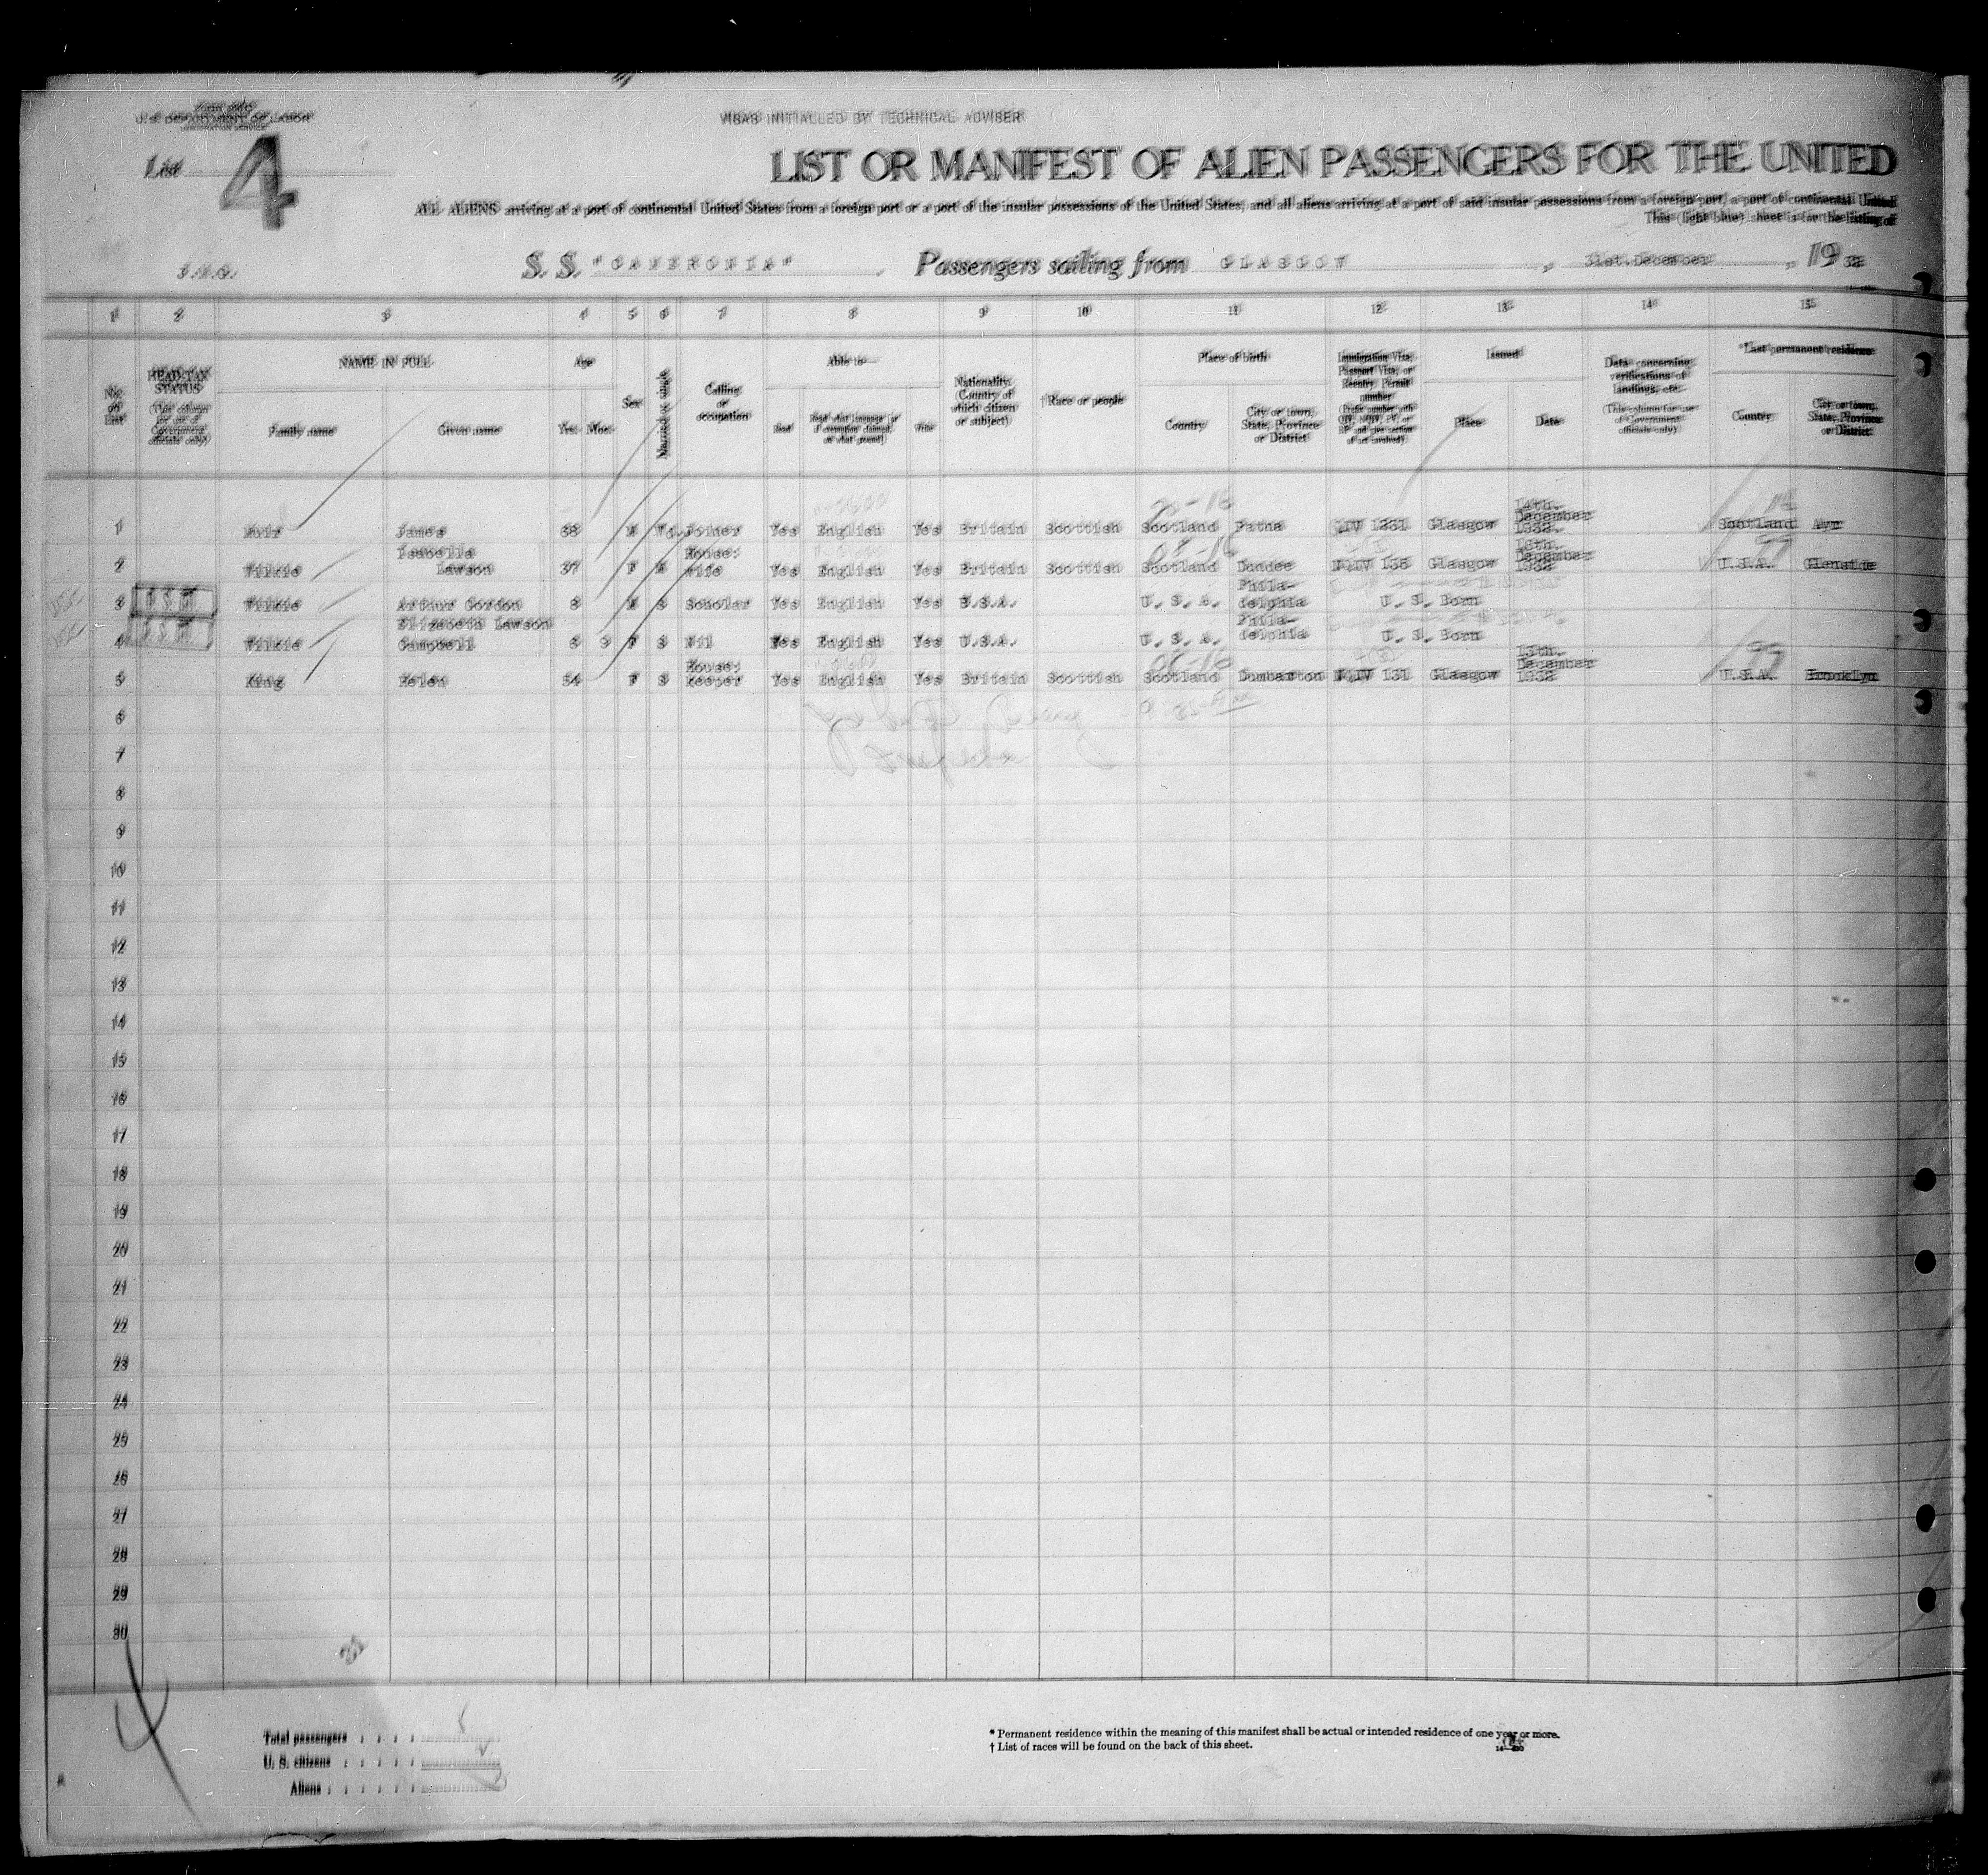 U. S. DEPARTMENT OF LABOR
IMMIGRATION SERVICE
VISAS INITIALLED BY TECHNICAL ADVISER
List 4
LIST OR MANIFEST OF ALIEN PASSENGERS FOR THE UNITED
ALL ALIENS arriving at a port of continental United States from a foreign port or a port of the insular possessions of the United States, and all aliens arriving at a port of said insular possessions from a foreign port, a port of continental United
This (light blue) sheet is for the listing of
S. S. "CAMERONIA" , Passengers sailing from GLASGOW , 31st.December , 19 32
1 2 3 4 5 6 7 8 9 10 11 12 13 14 15
No. on List
HEAD-TAX STATUS (This column for use of Government officials only)
NAME IN FULL
Family name Given name
Age
Yrs. Mos.
Sex
Married or single
Calling or occupation
Able to—
Read Read what language [or if exemption claimed, on what ground] Write
Nationality. (Country of which citizen or subject)
†Race or people
Place of birth
Country City or town, State, Province or District
Immigration Visa, Passport Visa, or Reentry Permit number
Issued
Place Date
Data concerning verifications of landings, etc. (This column for use of Government officials only)
*Last permanent residence
Country City or town, State, Province or District
1 Muir James 38 M Wd. Joiner Yes English Yes Britain Scottish Scotland Patna QIV 1231 Glasgow 14th. December 1932. Scotland Ayr
2 Wilkie Isabella Lawson 37 F M House: wife Yes English Yes Britain Scottish Scotland Dundee NQIV 135 Glasgow December 1932 U.S.A. Glenside
3 Wilkie Arthur Gordon 8 M S Scholar Yes English Yes U.S.A. U. S. A. Phila- delphia U. S. Born
4 Wilkie Elizabeth Lawson Campbell 9 F S Nil Yes English Yes U.S.A. U. S. A. Phila- delphia U. S. Born
5 King Helen 54 F S House: keeper Yes English Yes Britain Scottish Scotland Dumbarton NQIV 131 Glasgow 13th. December 1932 U.S.A. Brooklyn
6
7
8
9
10
11
12
13
14
15
16
17
18
19
20
21
22
23
24
25
26
27
28
29
30
Total passengers
U. S. citizens
Aliens
* Permanent residence within the meaning of this manifest shall be actual or intended residence of one year or more.
† List of races will be found on the back of this sheet.